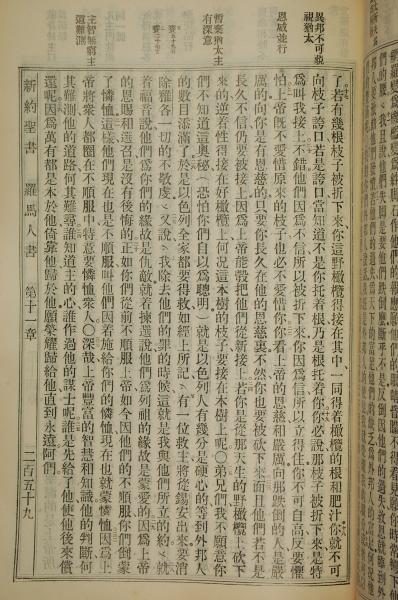 異邦不可藐視猶太
恩威並行
暫棄猶太主有深意
主智無窮主道難測
了若有幾根枝子被折下來你這野橄欖得接在其中一同得着橄欖的根和肥汁你就不可
向枝子誇口若是誇口當知道不是你托着根乃是根托着你你必說那枝子被折下來是特
爲叫我接上不錯他們因爲不信所以被折下來你因爲信所以立得住你不可自高反要懼
怕上帝既不愛惜原來的枝子也必不愛惜你你看上帝的恩慈和嚴厲向那跌倒的人是嚴
厲的向你是有恩慈的只要你長久在他的恩慈裏不然你也要被砍下來而且他們若不是
長久不信仍要被接上因爲上帝能彀把他們從新接上若你是從那天生的野橄欖上砍下
來的逆着性得接在好橄欖上何况這本樹的枝子要接在本樹上呢○弟兄們我不願意你
們不知道這奧秘恐怕你們自以爲聰明就是以色列人有幾分是硬心的等到外邦人
的數目添滿了於是以色列全家都要得救如經上所記有一位救主將從錫安出來要消
除雅各一切的不敬虔又說我除去他們的罪的時候這就是我與他們所立的約就
着福音說他們爲你們的緣故是仇敵就着揀選說他們爲列祖的緣故是蒙愛的因爲上帝
的恩賜和選召是沒有後悔的正如你們從前不順服上帝如今因他們的不順服你們倒蒙
了憐恤這樣他們現在也是不順服叫他們因着施給你們的憐恤現在也就蒙憐恤因爲上
帝將衆人都圈在不順服中特意要憐恤衆人○深哉上帝豐富的智慧和知識他的判斷何
其難測他的道路何其難尋誰知道主的心誰作過他的謀士呢誰是先給了他使他後來償
還呢因爲萬有都是本於他倚靠他歸於他願榮耀歸給他直到永遠阿們
新約聖書　羅馬人書　第十一章　二百五十九